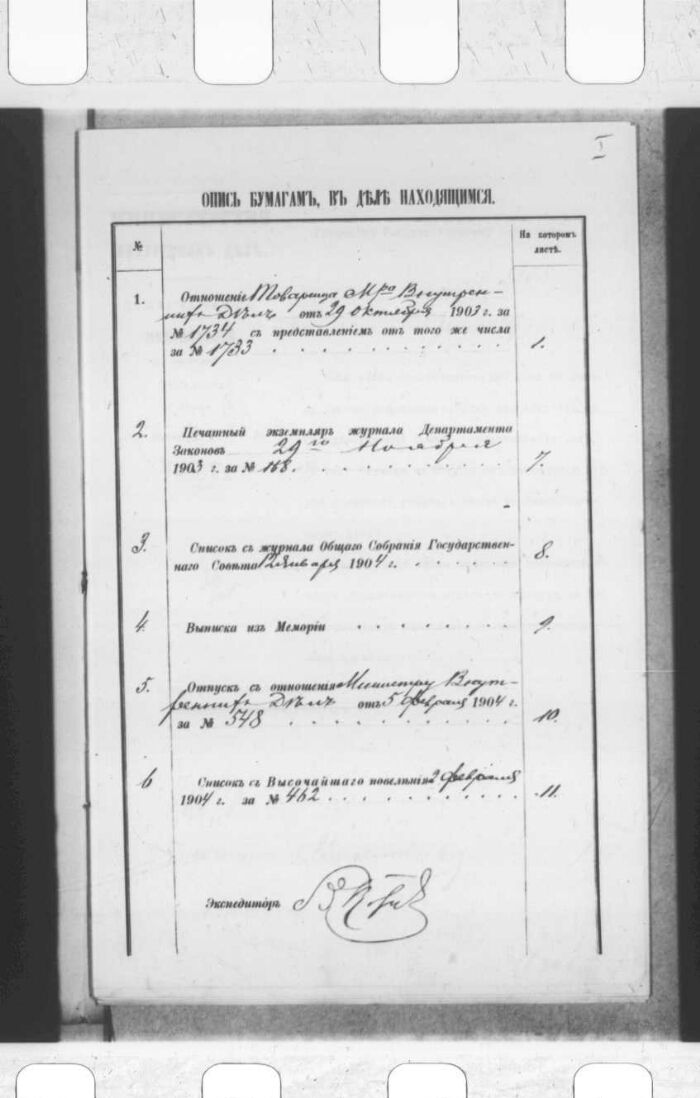 I
ОПИСЬ БУМАГАМЪ, ВЪ ДѢЛѢ НАХОДЯЩИМСЯ.
№
На которомъ
листѣ.
1. Отношеніе Товарища М-ра Внутрен-
нихъ Дѣлъ отъ 29 Октября 1903 г. за
№ 1734 съ представленіемъ отъ того же числа
за № 1733 . . . . . . . . . . 1.
2. Печатный экземпляръ журнала Департамента
Законовъ 29го Ноября
1903 г. за № 168. . . . . . . . . . 7.
3. Списокъ съ журнала Общаго Собранія Государствен-
наго Совѣта 12 Января 1904 г. . . . . . 8.
4. Выписка изъ Меморіи . . . . . . . . 9.
5. Отпускъ съ отношенія Министру Внут-
реннихъ Дѣлъ отъ 5 Февраля 1904 г.
за № 548 . . . . . . . . . . 10.
6 Списокъ съ Высочайшаго повелѣнія 2 Февраля
1904 г. за № 462 . . . . . . . . . . 11.
Экспедиторъ